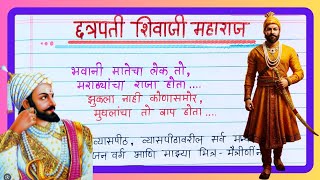 छत्रपती शिवाजी महाराज
भवानी मातेचा लेक तो,
मराठ्यांचा राजा होता ....
झुकला नाही कोणासमोर,
मुघलांचा तो बाप होता ....
व्यासपीठ, व्यासपीठावरील सर्व
जन वर्ग आणि माझ्या मित्र - मैत्रीणीं